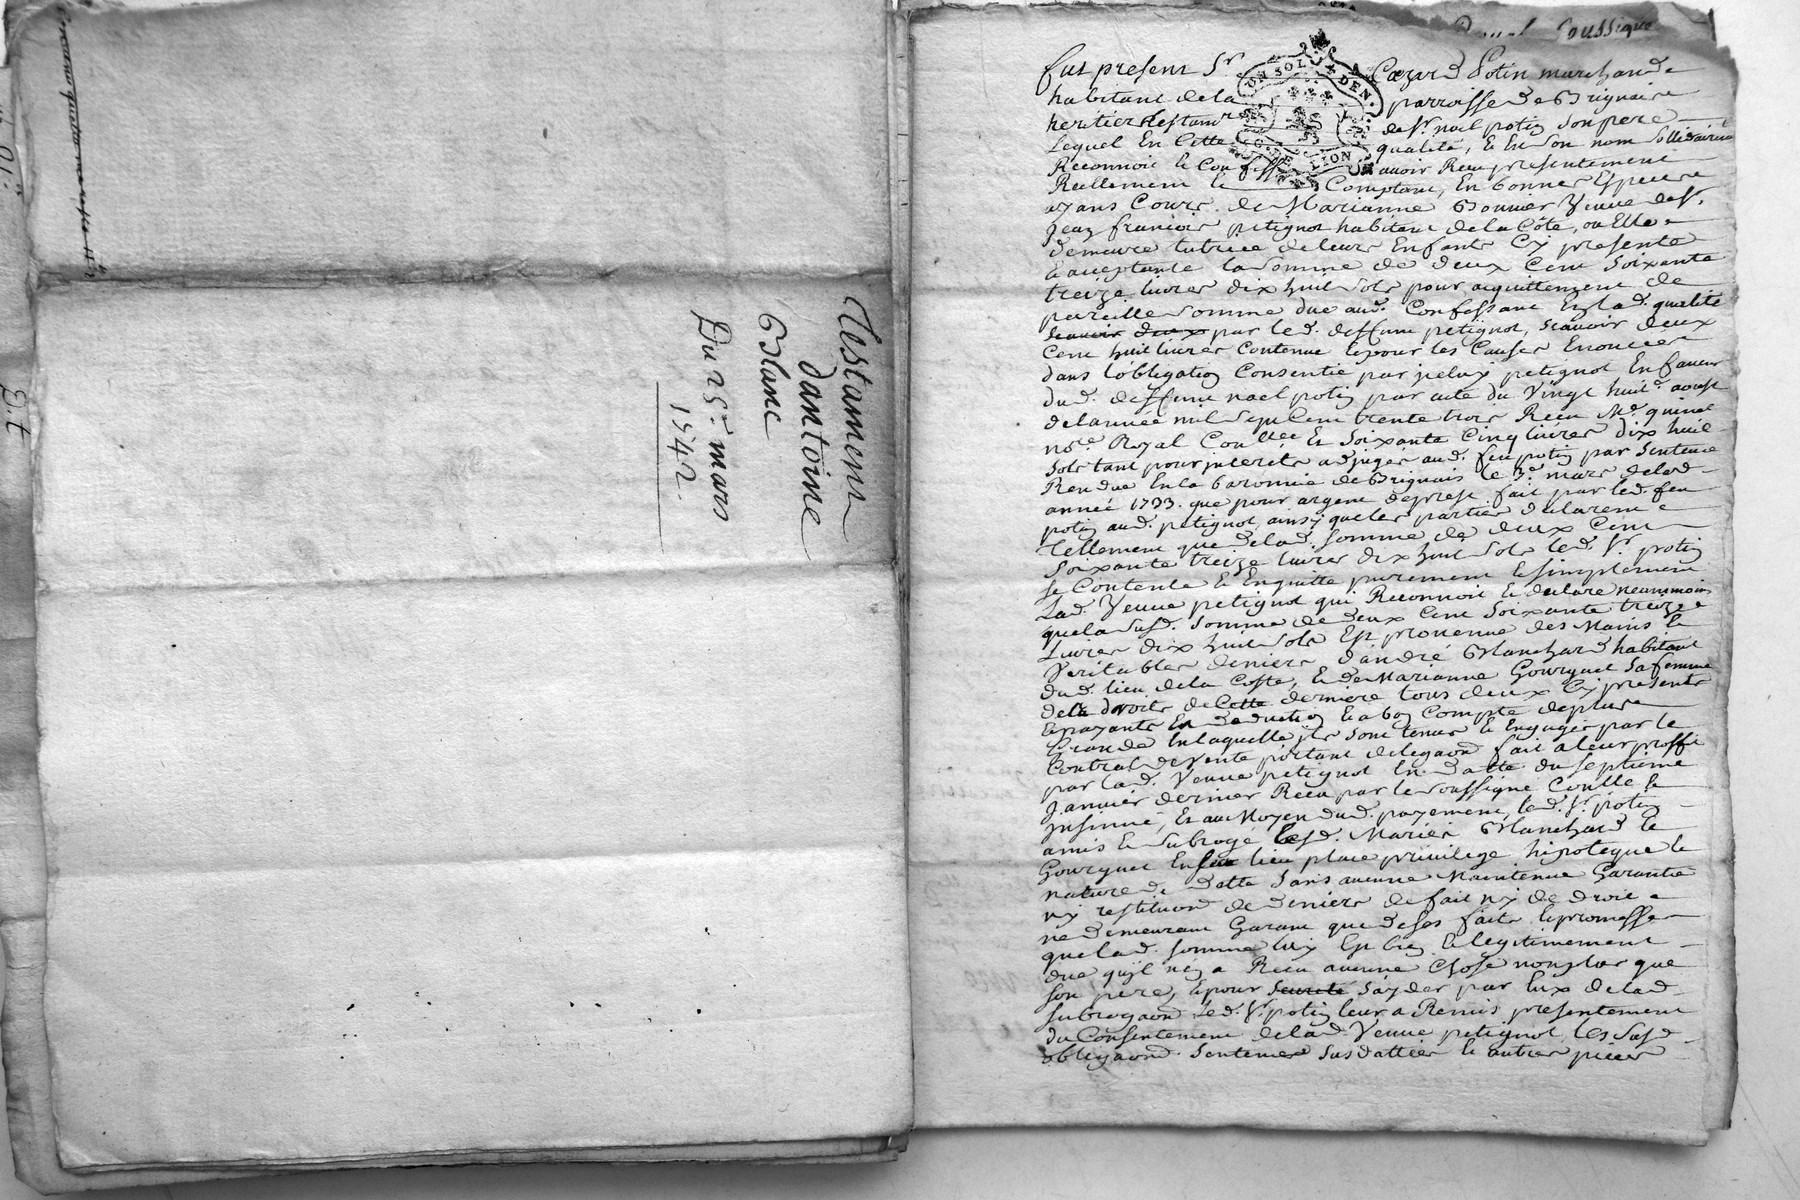 Testament
dantoine
Blanc
Du 25e mars
1542.
Royal soussigné
fut present Sr Cezard Potin marchand
habitant de la parroisse de Brignais
heritier testamre de Sr. noel potin son pere
Lequel En Cette qualité, & En Son nom Sollidairemt
Reconnoit & Confesse avoir Receu presentement
Reellement & Comptant, En bonnes Especes
ayans Cours de Marianne Bonnier Veuve de Sr.
Jean francois petignot habitant de la Côte, ou Elle
demeure tutrice de leurs Enfants Cy presente
& acceptante la Somme de deux Cent Soixante
treize livres dix huit Sols pour acquittement de
pareille Somme due aud. Confessant En lad. qualité
Scavoir deux par led. deffunt petignot, Scavoir deux
Cent huit livres Contenue & pour les Causes Enoncées
dans lobligation Consentie par jceluy petignot En faveur
dud. deffunt noel potin par acte du Vingt huit. aoust
de lannée mil Sept Cent trente trois Receu Me. quinat
nore. Royal Coullée Et Soixante Cinq livres dix huit
Sols tant pour jnterets adjugés aud. feu potin par Sentence
Rendue En la baronnie de Brignais le 3e. mars de lad.
année 1733. que pour argent depuis fait par led. feu
potin aud. petignot, ainsy que les parties declarent
Tellement que de lad. Somme de deux Cent
Soixante treize livres dix huit Sols led. Sr. potin
se Contente & En quitte purement & simplement
Lad. Veuve petignot qui Reconnoit & declare neanmoins
que la Susd. Somme de deux Cent Soixante treize
Livres dix huit Sols Est provenue des Mains &
Veritables deniers dandré Blanchard habitant
dud. lieu de la Coste, & de Marianne Gourguet Sa femme
de la droits de Cette derniere tous deux Cy presents
& payants En deduction & a bon Compte de plus
Grande En laquelle jls Sont tenus & Engagés par le
Contrat de Vente portant delegaon fait a leur proffit
par lad. Veuve petignot En datte du Septieme
Janvier dernier Receu par le Soussigné Coullé &
jnsinué, Et au Moyen dud. payement, led. Sr. potin
a mis & Subrogé lesd. Mariés Blanchard &
Gourguet En Son lieu place privilege hipoteque &
nature de dette Sans aucune Maintenue Garantie
ny restituon de deniers de fait ny de droit
ne demeurant Garant que de ses faits & promesses
que lad. Somme luy Est bien & legitimement
due quyl ney a Receu aucune Chose non plus que
Son pere, & pour Seureté Sayder par lux de lad.
Subrogaon led. Sr. potin leur a Remis presentement
du Consentement de lad. Veuve petignot les Susd.
obligaon Sentences Sus dattées & autres pieces